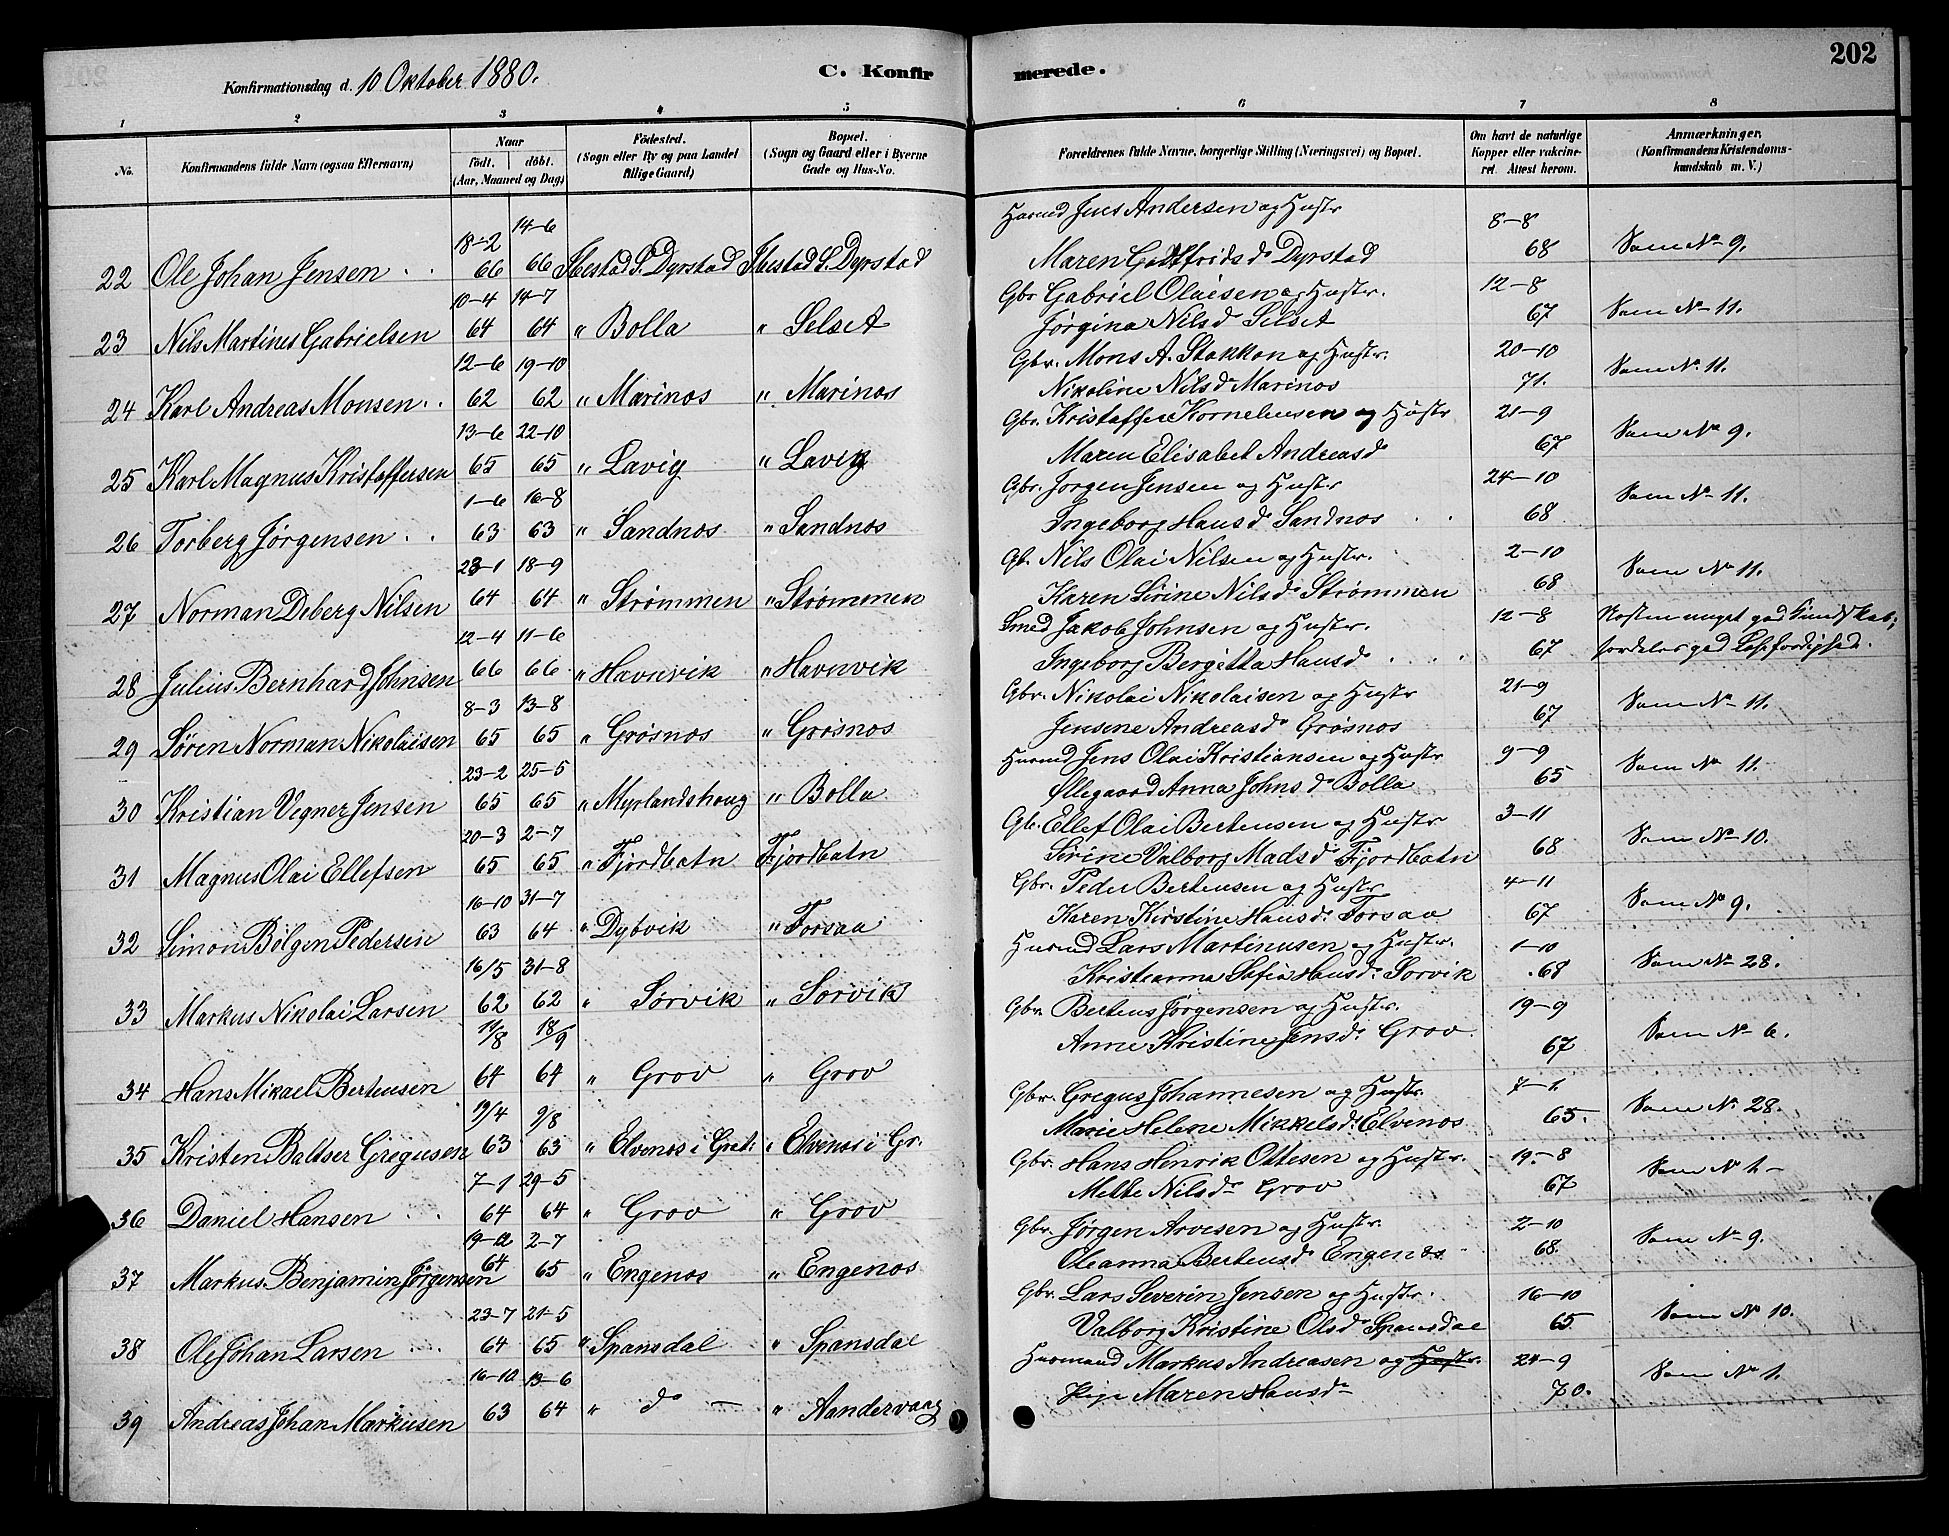 202
Konfirmationsdag d. 10 Oktober 1880.
C. Konfir merede.
1 2 3 4 5 6 7 8
No.
Konfirmandens fulde Navn (ogsaa Efternavn)
Naar
født. døbt.
(Aar, Maaned og Dag)
Fødested.
(Sogn eller By og paa Landet
tillige Gaard)
Bopæl.
(Sogn og Gaard eller i Byerne
Gade og Hus-No.
Forældrenes fulde Navne, borgerlige Stilling (Næringsvei) og Bopæl.
Om havt de naturlige
Kopper eller vakcine-
ret. Attest herom.
Anmærkninger.
(Konfirmandens Kristendoms-
kundskab m. V.)
18-2 14-6 Husmd Jens Andersen og Hustr 8-8
22 Ole Johan Jensen 66 66 Ibestad S. Dyrstad Ibestad S. Dyrstad Maren Gottfridsd. Dyrstad 68 Som No 9.
10-4 14-7 Gbr Gabriel Olaisen og Hustr. 12-8
23 Nils Martines Gabrielsen 64 64 " Bolla " Selset Jørgina Nilsd Selset 67 Som No 11.
12-6 19-10 Gbr. Mons A. Stokkan og Hustr. 20-10
24 Karl Andreas Monsen 62 62 " Marinos " Marinos Nikoline Nilsd Marinos 71. Som No 11.
13-6 22-10 Gbr. Kristoffer Korneliusen og Hustr 21-9
25 Karl Magnus Kristoffersen 65 65 " Lavig " Lavig Maren Elisabet Andreasd 67 Som No 9.
1-6 16-8 Gbr. Jørgen Jensen og Hustr 24-10
26 Torberg Jørgensen 63 63 " Sandnos " Sandnos Ingeborg Hansd. Sandnos 68 Som No 11.
23-1 18-9 Gb. Nils Olai Nilsen og Hustr. 2-10
27 Norman Deberg Nilsen 64 64 " Strømmen " Strømmen Karen Sirine Nilsd. Strømmen 68 Som No 11.
12-4 11-6 Smed Jakob Johnsen og Hustr. 12-8
28 Julius Bernhard Johnsen 66 66 " Havnvik " Havnvik Ingeborg Bergitta Hansd. 67 Næsten meget god Kundskab,
8-3 13-8 Gbr. Nikolai Nikolaisen og Hustr 21-9
29 Søren Norman Nikolaisen 65 65 " Grøsnos " Grøsnos Jensene Andreasd. Grøsnos 67 Som No 11.
23-2 25-5 Husmd Jens Olai Kristiansen og Hustr 9-9
30 Kristian Vegner Jensen 65 65 " Myrlandshaug " Bolla Øllegaard Anna Johnsd Bolla 65 Som No 11.
20-3 2-7 Gb. Ellef Olai Bertensen og Hustr 3-11
31 Magnus Olai Ellefsen 65 65 " Fjordbotn Fjordbotn Sirine Valborg Madsd. Fjordbotn 68 Som No 10.
16-10 31-7 Gbr. Peder Bertensen og Hustr 4-11
32 Simon Bølgen Pedersen 63 64 " Dybvik " Forsaa Karen Kirstine Hansd. Forsaa 67 Som No 9.
16/5 31-8 Husmd Lars Martinusen og Hustr. 1-10
33 Markus Nikolai Larsen 62 62 " Sørvik " Sørvik Kristianna Sofia Hansd. Sørvik 68 Som No 28.
18/9 Gbr Berteus Jørgensen og Hustr. 19-9
34 Hans Mikael Berteusen 64 64 " Grov " Grov Anne Kristine Jensd. Grov 67 Som No 6.
19/4 9/8 Gbr. Gregus Johannesen og Hustr.
35 Kristen Baltser Gregusen 63 63 " Elvenos i Grat. " Elvenos i Gr. Marie Helene Mikkelsd. Elvenos 65. Som No 28.
7-1 29-5 Gbr. Hans Henrik Ottesen og Hustr. 19-8
36 Daniel Hansen 64 64 " Grov " Grov Mette Nilsd. Grov 67 Som No 1.
19-12 2-7 Gbr. Jørgen Arvesen og Hustr. 2-10
37 Markus Benjamin Jørgensen 64 65 " Engenos " Engenos Oleanna Bertensd Engenos 68. Som No 9.
23-7 21-5 Gbr. Lars Severin Jensen og Hustr. 16-10
38 Ole Johan Larsen 64 65 " Spansdal " Spansdal Valborg Kristine Olsd. Spansdal 65 Som No 10.
16-10 13-6 Husmand Markus Andreasen og Hustr. 24-9
39 Andreas Johan Markusen 63 64 " do - " Aandervaag Pige Maren Hansd. 70. Som No 1.